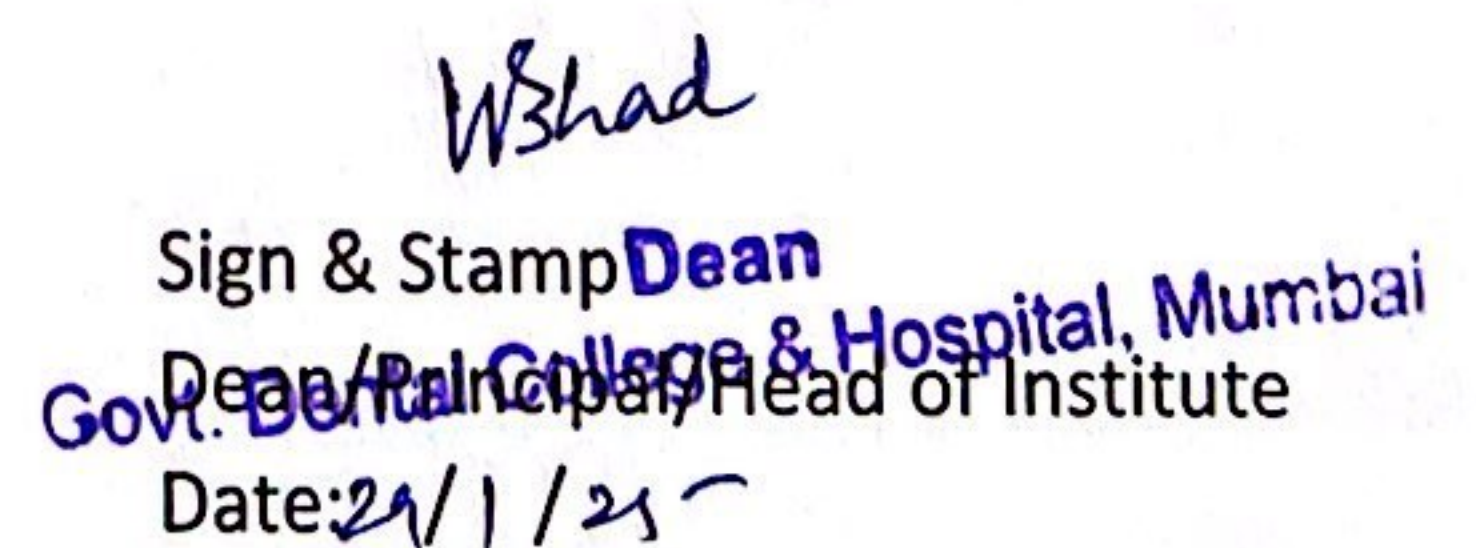 WBhad
Sign & Stamp Dean
Govt. Dental College & Hospital, Mumbai
Dean/Principal/Head of Institute
Date:29/1/25